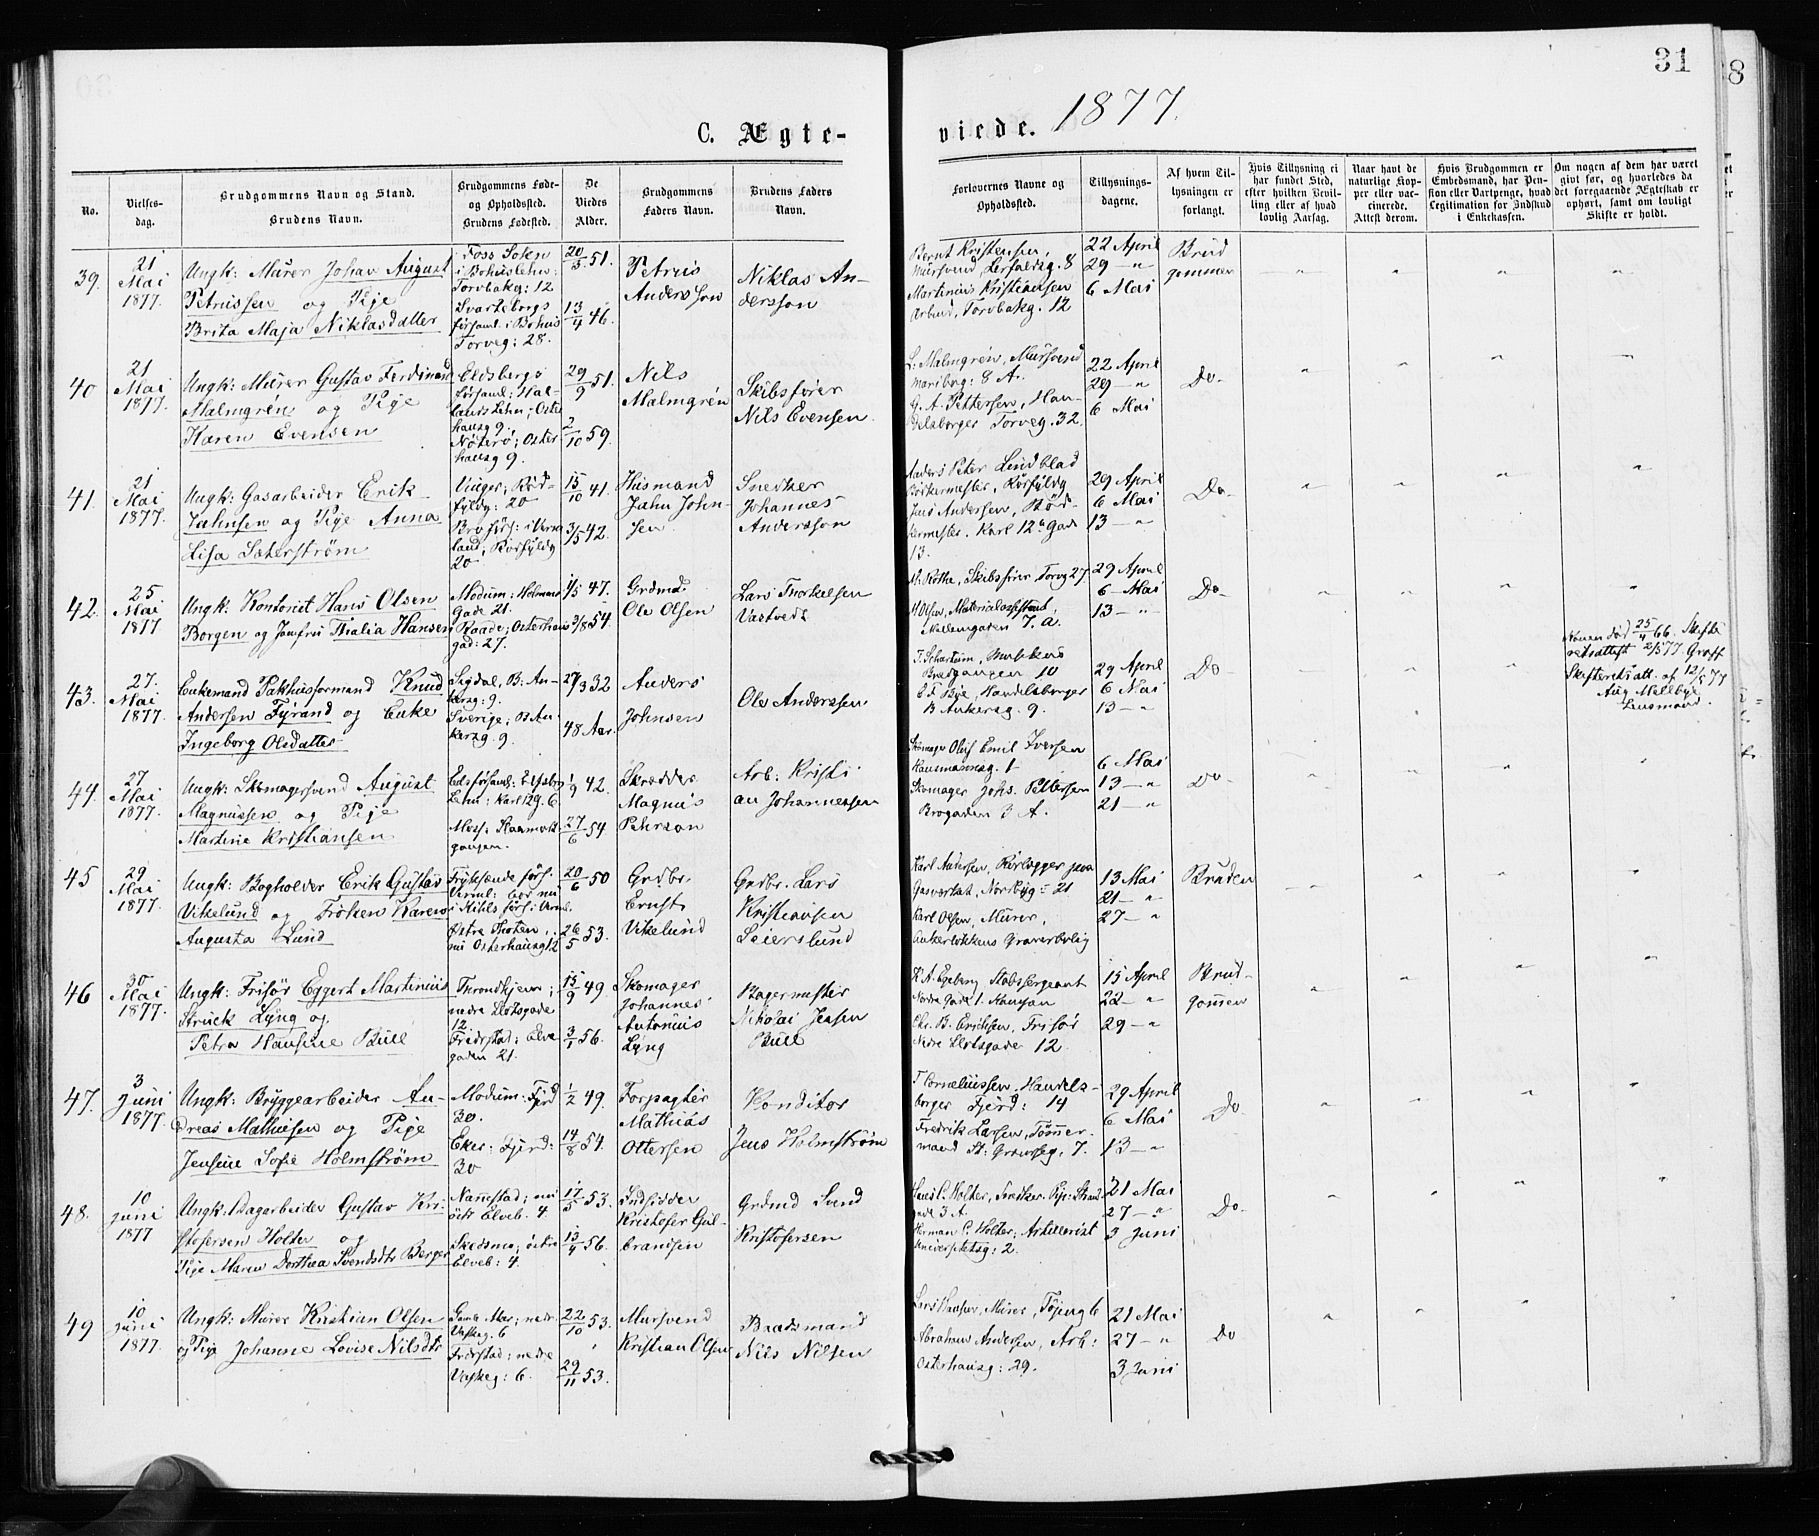 31
8
1877.
C. Ægte-
viede.
No.
Vielses-
dag.
Brudgommens Navn og Stand.
Brudens Navn.
Brudgommens Føde-
og Opholdssted.
Brudens Fødested.
De
Viedes
Alder.
Brudgommens
Faders Navn.
Brudens Faders
Navn.
Forlovernes Navne og
Opholdssted.
Tillysnings-
dagene.
Af hvem Til-
lysningen er
forlangt.
Hvis Tillysning ei
har fundet Sted,
efter hvilken Bevil-
ling eller af hvad
lovlig Aarsag.
Naar havt de
naturlige Kop-
per eller vac-
cinerede.
Attest derom.
Hvis Brudgommen er
Embedsmand, har Pen-
sion eller Vartpenge, hvad
Legitimation for Indskud
i Enkekassen.
Om nogen af dem har været
givt før, og hvorledes da
det foregaaende Ægteskab er
ophørt, samt om lovligt
Skifte er holdt.
39.
21
Mai
1877.
Ungk: Murer Johan August
Petrussen og Pige
Brita Maja Niklasdatter
Foss Soken
i Bohuslehn:
Torvbakg: 12
Svarteborgs
forsaml. i Bohus
Torveg: 28.
20/5 51.
13/4 46.
Petrus
Andersson
Niklas An-
dersson
Bernt Kristensen,
Mursvend, 8
Martinius Kristiansen
Arbeid, Torvbakg. 12
22 April
29 — "
6 Mai
Brud
gommen
40
21
Mai
1877.
Ungk: Murer Gustav Ferdinand
Malmgrén og Pige
Karen Evensen
Eldsbergs
forsaml: Hal-
lands Lehn; Oster
hausg 9.
Nøterø; Oster
hausg 9.
29/9 51.
2/10 59.
Nils
Malmgrén
Skibsfører
Nils Evensen
L. Malmgrén, Mursvend
Mariborg: 8 A.
G. A. Pettersen, Han-
delsborger Torveg. 32.
22 April
29 — "
6 Mai
Do-
41.
21
Mai
1877.
Ungk: Gasarbeider Erik
Jahnsen og Pige Anna
Lisa Säterström
Vinger; Rød-
fyldg: 20
Bro førs: i Verm
land, Rørfyldg
20
15/10 41.
3/5 42.
Husmand
Jahn John-
sen
Snedker
Johannes
Andersson
Anders Peter Lindblad
Bødkermester, Rørfyldg
Jens Andersen, Bød-
kermester. Karl 12te Gade
13.
29 April
6 Mai
13 — "
Do-
42.
25
Mai
1877
Ungk. Kontorist Hans Olsen
Borgen og Jomfru Thalia Hansen
Modum: Holmens
Gade 21.
Raade; Osterhaus
gad: 27.
1/5 47.
3/8 54.
Grdmd.
Ole Olsen
Lars Torkelsen
Vastvedt
M. Røthe, Skibsfører Torvg 27
H. Olsen, Materialassistent,
Møllergaden 7. a.
29 April
6 Mai
13 — "
Do-
43.
27.
Mai
1877.
Enkemand Pakhusformand Knud
Andersen Fyrand og Enke
Ingeborg Olsdatter
Sigdal, B. An-
kersg: 9.
Sverige; B. An-
kersg. 9.
27/3 32
48 Aar.
Anders
Johnsen
Ole Anderssen
T. Schartum,
10
O. F. Bye, Handelsborger
B Ankersg. 9.
29 April
6 Mai
13 — "
Do
Konen død 25/4 66. Skifte
retsattest 2/5 77. Graff
Skifteretsatt. af 12/5 77
Aug Mellbye
Lensmand.
44.
27
Mai
1877.
Ungk: Skomagersvend August
Magnussen og Pige
Martine Kristiansen
Edsforsaml: Elfsborg
Lehn: Karl 12 g. 6
Moss:
gangen.
1/9 42.
27/6 54.
Skrædder
Magnus
Peterson
Arb: Kristi
an Johannessen
Skomager Oluf Emil Iversen
Hausmannsg. 1
Skomager Johs. Pettersen
Brogaden 3 A.
6 Mai
13 — "
21 — "
Do
45
29
Mai
1877.
Ungk: Bogholder Erik Gustav
Vikelund og Frøken Karen
Augusta Lund
Fryksände førs.
Verml: bor nu
i Kihls førs: Verml.
Østre Thoten,
nu Osterhausg 12
20/6 50
26/5 53.
Grdbr.
Ernst
Vikelund
Grdbr. Lars
Kristiansen
Leierslund
Karl Andersen, Rørlægger paa
Gasverket, Norbyg: 21
Karl Olsen, Murer,
Ankerløkkens Graverbolig
13 Mai
21 — "
27 — "
Bruden
46
30
Mai
1877.
Ungk: Frisør Eggert Martinius
Struck Lyng og
Petra Hansine Bull
Throndhjem;
nedre Slotsgade
12
Fredrstad; Elve
gaden 21.
15/9 49.
3/1 56.
Skomager
Johannes
Antonius
Lyng
Bagermester
Nikolai Jensen
Bull
K. A. Egeberg Stabssergeant
Nordre Gade 1.
Chr. B. Erichsen, Frisør
Nedre Slotsgade 12.
15 April
22 — "
29 — "
Brud-
gommen
47.
3
Juni
1877.
Ungk: Bryggearbeider An-
dreas Mathiesen og Pige
Jensine Sofie Holmstrøm
Modum: Fjerd
30.
Eker: Fjerd:
30
1/2 49.
14/8 54.
Forpagter
Mathias
Ottersen
Konditor
Jens Holmstrøm
T Corneliussen, Handels-
borger Fjerd: 14
Fredrik Larsen, Tømmer-
mand St: Grændseg. 7.
29 April
6 Mai
13 — "
Do-
48.
10
Juni
1877
Ungk: Dagarbeider Gustav Kri-
stofersen Holter og
Pige Maren Dorthea Svendsdtr Berger
Nannestad; nu
østre Elveb. 4.
Skedsmo; østre
Elveb: 4.
17/5 53.
13/4 56.
Indsidder
Kristofer Gul-
brandsen
Grdmd Svend
Kristofersen
Hans C. Holter, Snedker. Pipr: Strand
gade 3 A.
Herman C. Holter, Artillerist
Universitetsg: 2.
21 Mai
27 — "
3 Juni
Do-
49
10
Juni
1877.
Ungk: Murer Kristian Olsen
og Pige Johanne Lovise Nilsdtr
Gamle Moss; nedre
Vaskeg. 6
Fredrstad; nedre
Vaskeg: 6.
22/10 53.
29/11 53.
Mursvend
Kristian Olsen
Baadsmand
Nils Nilsen
Lars Hansen, Murer, Tøieng 6
Abraham Andersen, Arb:
Osterhausg: 29.
21 Mai
27 — "
3 Juni
Do